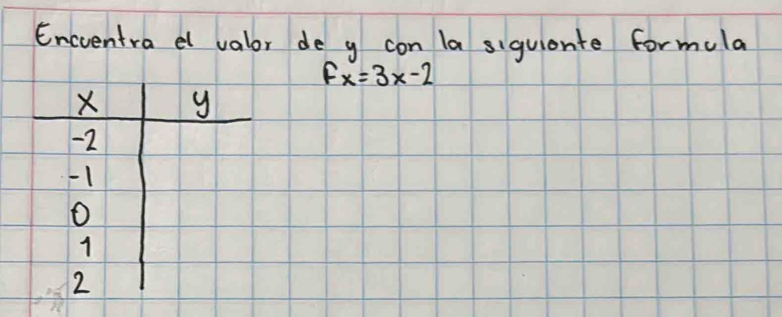 Encuentra el valor de y con la siguiente formula
fx=3x-2
x y
-2
-1
0
1
2